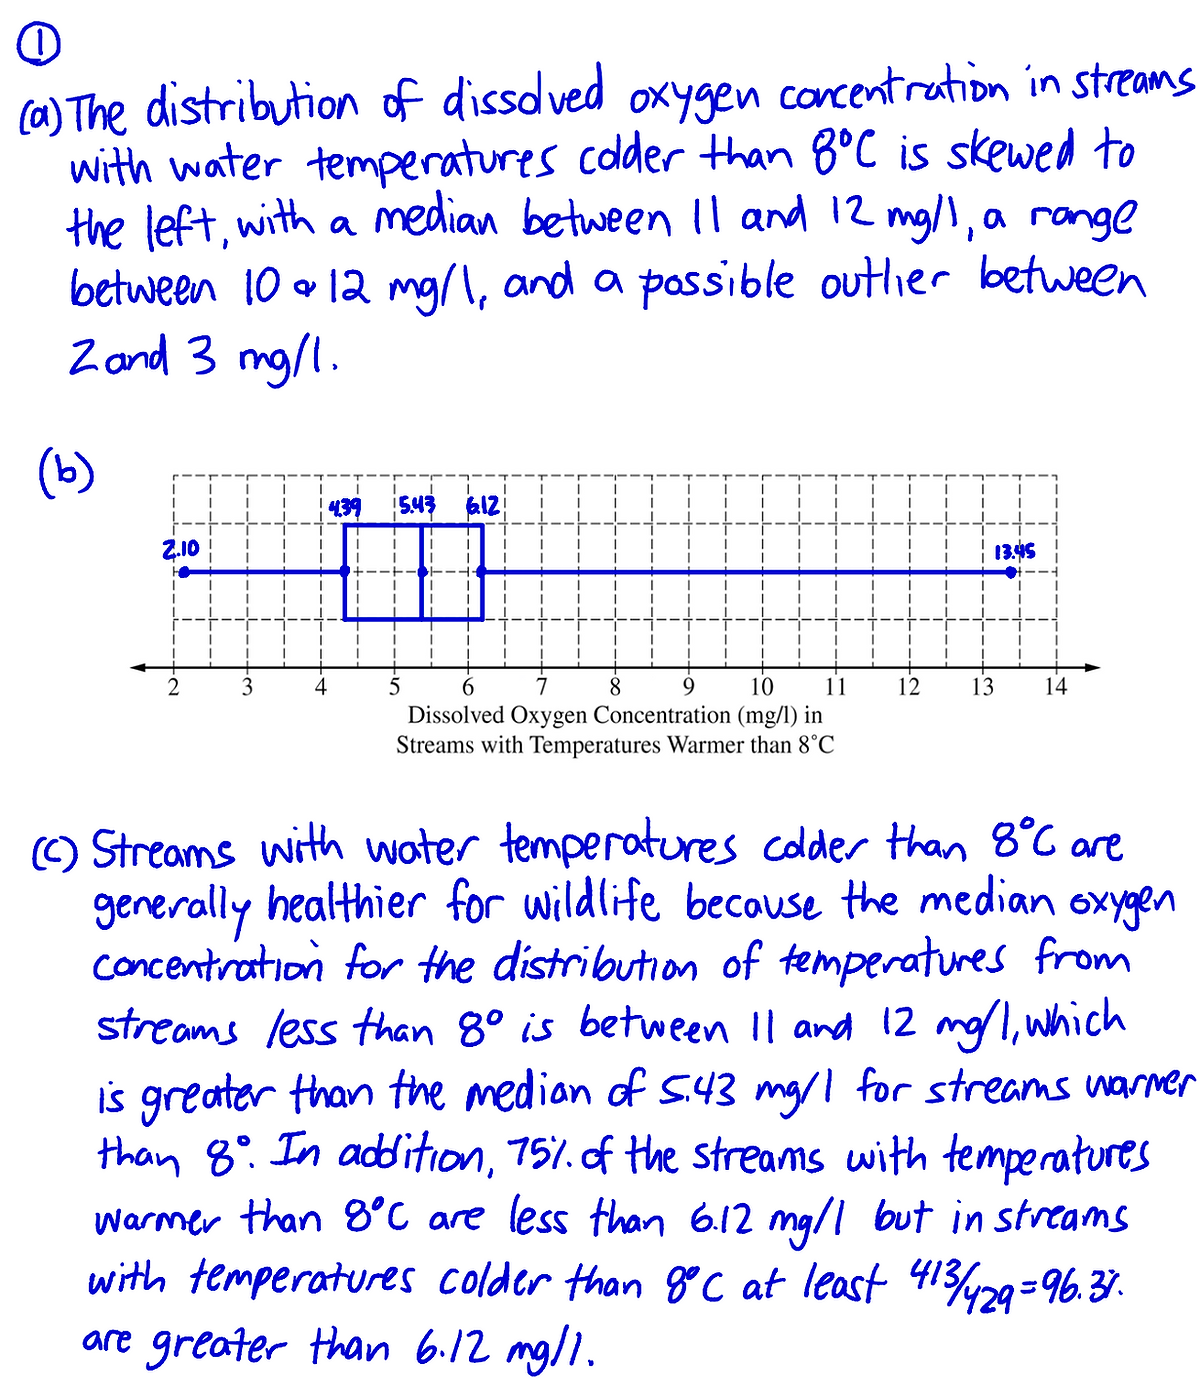 ①
(a) The distribution of dissolved oxygen concentration in streams
with water temperatures colder than 8°C is skewed to
the left, with a median between 11 and 12 mg/l, a range
between 10 & 12 mg/l, and a possible outlier between
2 and 3 mg/l.
(b)
4.39 5.43 6.12
2.10 13.45
2 3 4 5 6 7 8 9 10 11 12 13 14
Dissolved Oxygen Concentration (mg/l) in
Streams with Temperatures Warmer than 8°C
(c) Streams with water temperatures colder than 8°C are
generally healthier for wildlife because the median oxygen
concentration for the distribution of temperatures from
streams less than 8° is between 11 and 12 mg/l, which
is greater than the median of 5.43 mg/l for streams warmer
than 8°. In addition, 75% of the streams with temperatures
warmer than 8°C are less than 6.12 mg/l but in streams
with temperatures colder than 8°C at least 413/429 = 96.3%
are greater than 6.12 mg/l.